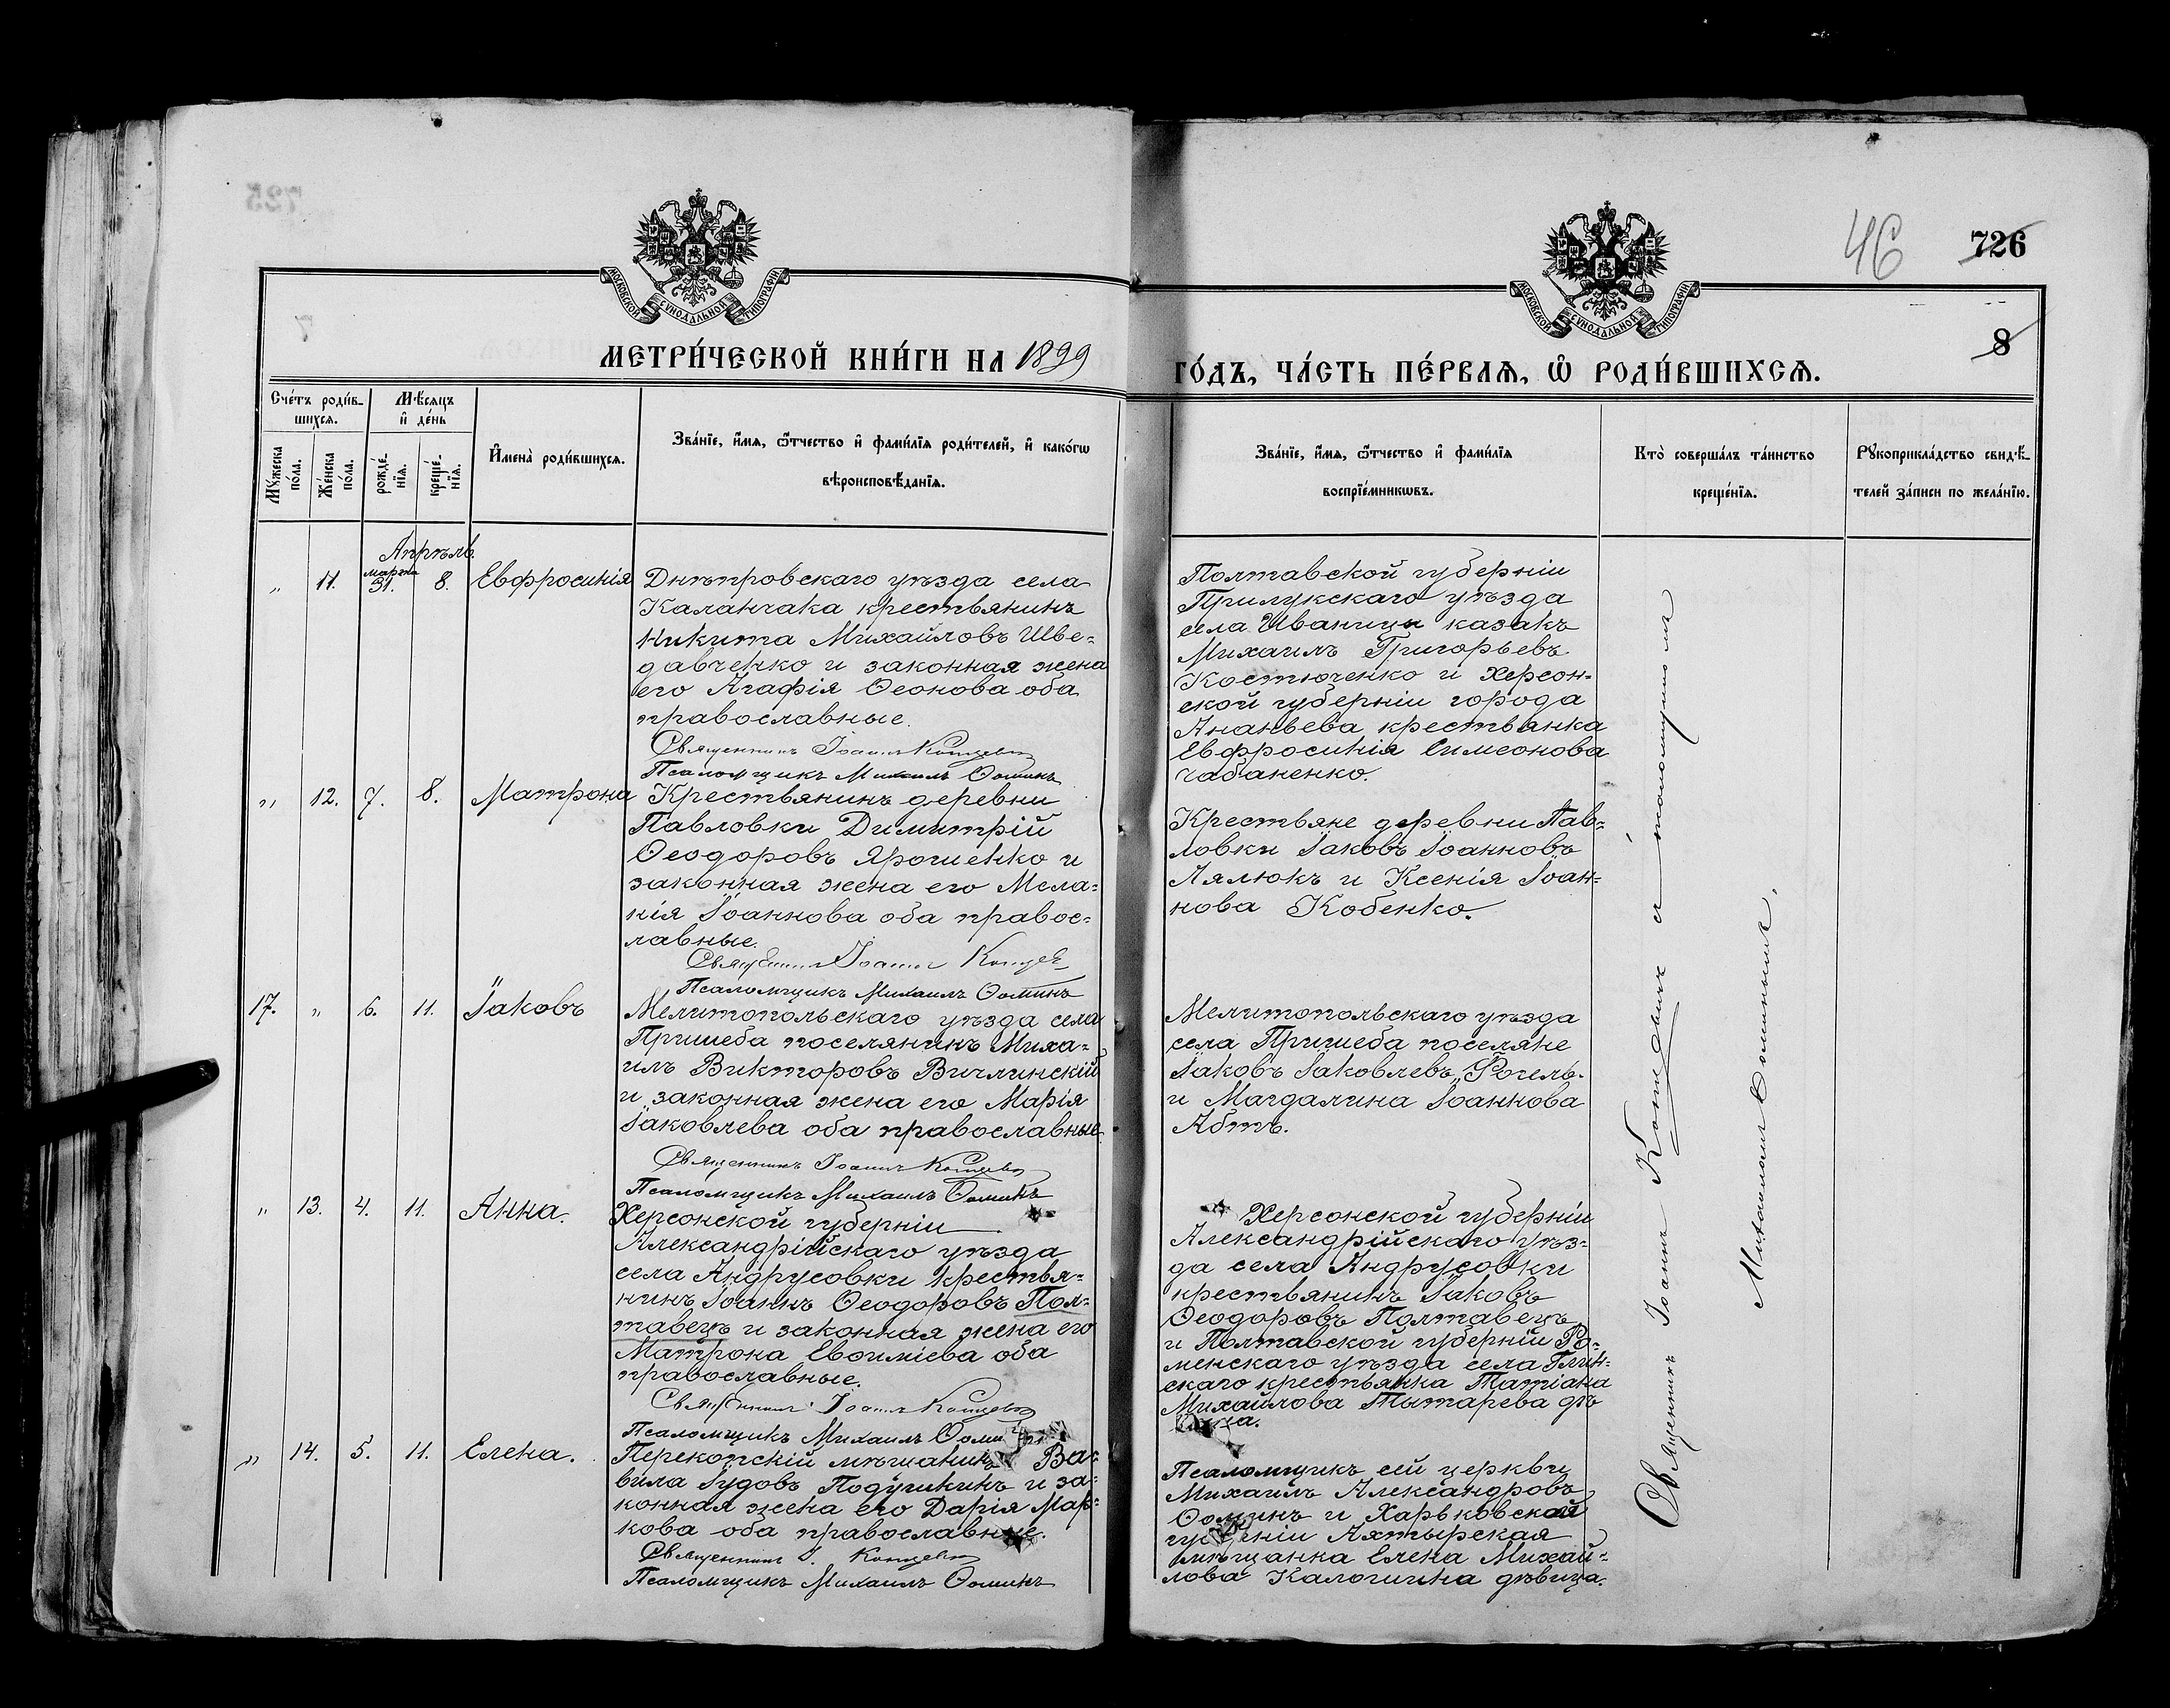 725
46
726
МОСКОВСКОЙ СѴНОДАЛЬНОЙ ТИПОГРАФІИ
МОСКОВСКОЙ СѴНОДАЛЬНОЙ ТИПОГРАФІИ
7
8
МЕТРИ́ЧЕСКОЙ КНИ́ГИ НА 1899
ГО́ДЪ, ЧА́СТЬ ПЕ́РВАѦ, Ѡ҆ РОДИ́ВШИХСѦ.
Сче́тъ роди́в-
шихсѧ.
Мѣ́сѧцъ
и҆ де́нь
Мꙋ́жеска
по́ла.
Же́нска
по́ла.
рожде́-
нїѧ.
креще́-
нїѧ.
И҆мена̀ роди́вшихсѧ.
Зва́нїе, и҆́мѧ, ѻ҆́тчество и҆ фами́лїѧ роди́телей, и҆ како́гѡ
вѣроисповѣ́данїѧ.
Зва́нїе, и҆́мѧ, ѻ҆́тчество и҆ фами́лїѧ
воспрїе́мникѡвъ.
Кто̀ соверша́лъ та́инство
креще́нїѧ.
Рꙋкоприкла́дство свидѣ́-
телей за́писи по жела́нїю.
Апрѣль.
„ 11. марта 31. 8. Евфросинія
Днѣпровскаго уѣзда села
Каланчака крестьянинъ
Никита Михайловъ Шве-
давченко и законная жена
его Агафія Ѳеонова оба
православные.
Священникъ Іоаннъ Котцевъ
Псаломщикъ Михаилъ Ѳоминъ
Полтавской губерніи
Прилукскаго уѣзда
села Иваницы казакъ
Михаилъ Григорьевъ
Костюченко и Херсон-
ской губерніи города
Ананьева крестьянка
Евфросинія Симеонова
Чабаненко.
„ 12. 7. 8. Матрона
Крестьянинъ деревни
Павловки Димитрій
Ѳеодоровъ Ярошенко и
законная жена его Мела-
нія Іоаннова оба правос-
лавные.
Священникъ Іоаннъ
Псаломщикъ Михаилъ Ѳоминъ
Крестьяне деревни Пав-
ловки Іаковъ Іоанновъ
Лялюкъ и Ксенія Іоан-
нова Кобенко.
17. „ 6. 11. Іаковъ
Мелитопольскаго уѣзда села
Пришеба поселянинъ Миха-
илъ Викторовъ Вичлинскій
и законная жена его Марія
Іаковлева оба православные
Священникъ Іоаннъ Котцевъ
Псаломщикъ Михаилъ Ѳоминъ
Мелитопольскаго уѣзда
села Пришеба поселяне
Іаковъ Іаковлевъ Фогель
и Магдалина Іоаннова
Абтъ.
„ 13. 4. 11. Анна.
Херсонской губерніи
Александрійскаго уѣзда
села Андрусовки крестья-
нинъ Іоаннъ Ѳеодоровъ Пол-
тавецъ и законная жена его
Матрона Евѳиміева оба
православные.
Священникъ Іоаннъ Котцевъ
Псаломщикъ Михаилъ Ѳоми
Херсонской губерніи
Александрійскаго уѣз-
да села Андрусовки
крестьянинъ Іаковъ
Ѳеодоровъ Полтавецъ
и Полтавской губерніи Ро-
менскаго уѣзда села Глин-
скаго крестьянка Татіана
Михайлова Тытарева дѣ-
„ 14. 5. 11. Елена.
Перекопскій мѣщанинъ Ва-
вила Іудовъ Подушкинъ и за-
конная жена его Дарія Мар-
кова оба православные.
Священникъ І. Котцевъ
Псаломщикъ Михаилъ Ѳоминъ
Псаломщикъ сей церкви
Михаилъ Александровъ
Ѳоминъ и Харьковской
губерніи Ахтырская
мѣщанка Елена Михай-
лова Калошина дѣвица.
Священникъ Іоаннъ съ псаломщикомъ
Михаиломъ Ѳоминымъ.